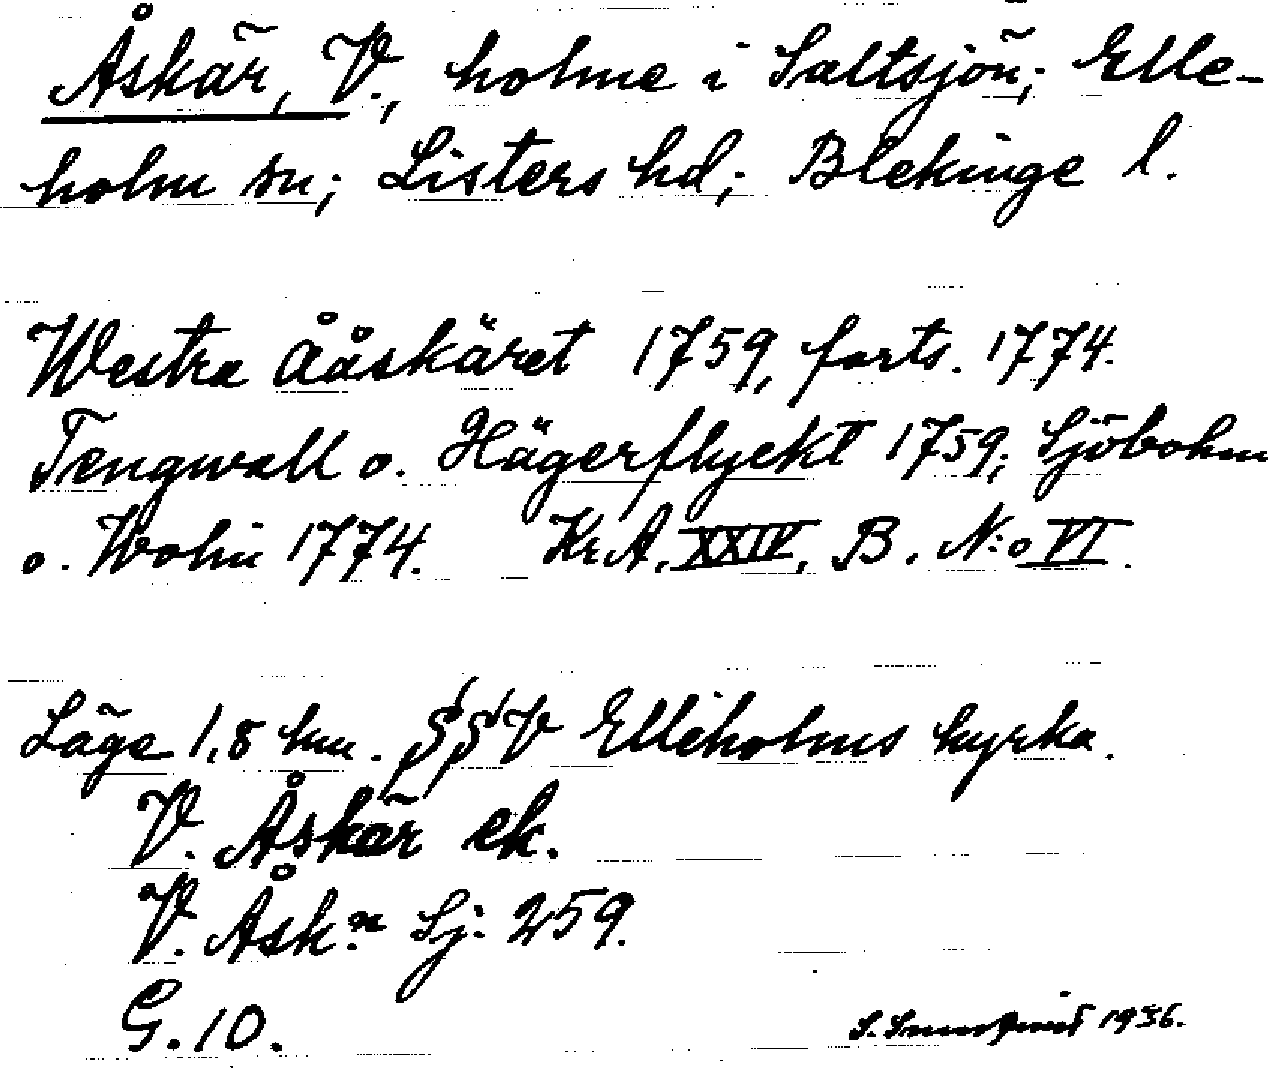 Åskär, V., holme i Saltsjön; Elle-
holm sn; Listers hd; Blekinge l.
Westra Ååskäret 1759, forts. 1774.
Tengwall o. Hägerflyckt 1759; Sjöbohm
o. Wolin 1774. Kr.A. XXIV, B. N:o VI.
Läge 1,8 km. SSV Elleholms kyrka.
V. Åskär ek.
V. Åsk:r Sj: 259.
G. 10.
S. 1936.